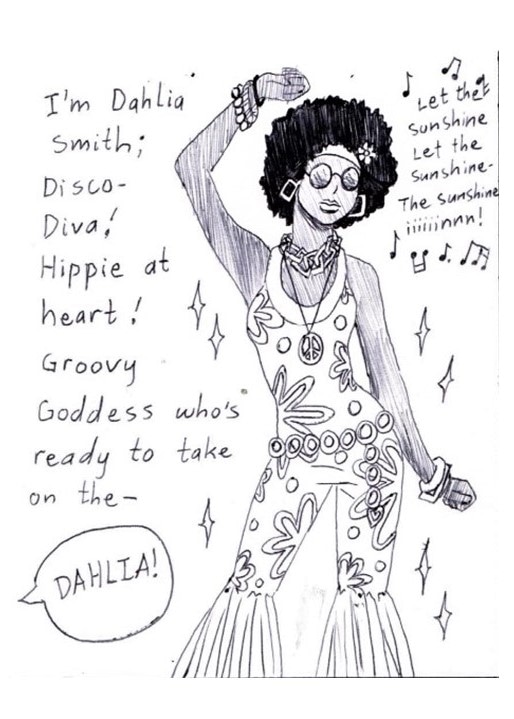 I'm Dahlia
Smith;
Disco-
Diva!
Hippie at
heart!
Groovy
Goddess who's
ready to take
on the-
DAHLIA!
Let the
sunshine
Let the
Sunshine-
The sunshine
iiiiiinnn!